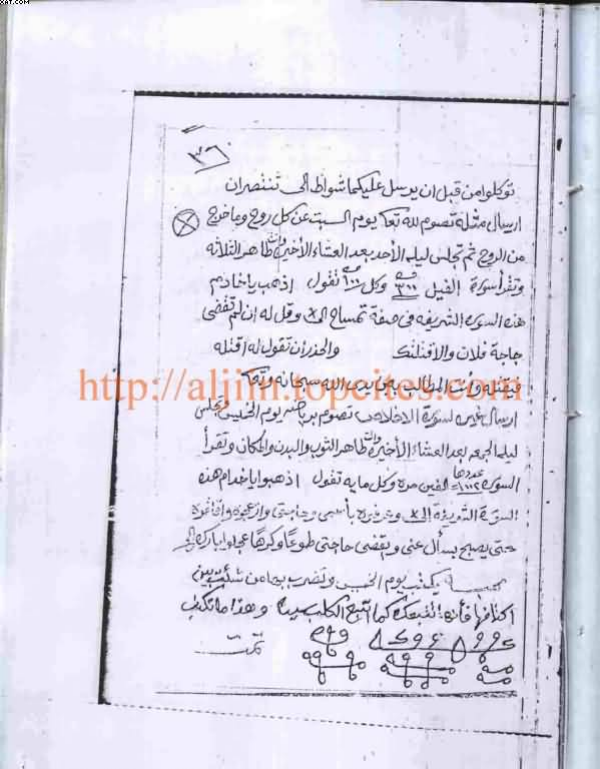 XAT.COM
٣٦
توكلوا من قبل ان يرسل عليكما شواظ الى تنتصران
ارسال مثله تصوم لله تعا يوم السبت عن كل روح وما خرج
من الروح ثم تجلس ليلة الأحد بعد العشاء الأخيرة وانت طاهر الثلاثه
وتقرأ سورة الفيل مرة وكل مرة تقول اذهب يا خادم
هذه السورة الشريفه في صفة تمساح الى وقل له ان لم تقضى
حاجة فلان والا قتلتك والحذر ان تقول له اقتله
فيقتله وانت المطالب بين يدى الله سبحانه وتعا
http://aljinn.topcities.com
ارسال لسورة الاخلاص تصوم يوم الخميس وتجلس
ليلة الجمعه بعد العشاء الأخيرة وانت طاهر الثوب والبدن والمكان وتقرأ
السورة عددها ١٠٠٢ الفين مره وكل مايه تقول اذهبوا يا خدام هذه
السورة الشريفة الى بأسمى وحاجتى وازعجوه
حتى يصبح يسأل عنى ويقضى حاجتى طوعا وكرها
يكتب يوم الخميس وتضرب بها من شئت بين
اكتافها فأنها تتبعك كما اتبع الكلب سيده وهذا ما تكتب
تمت